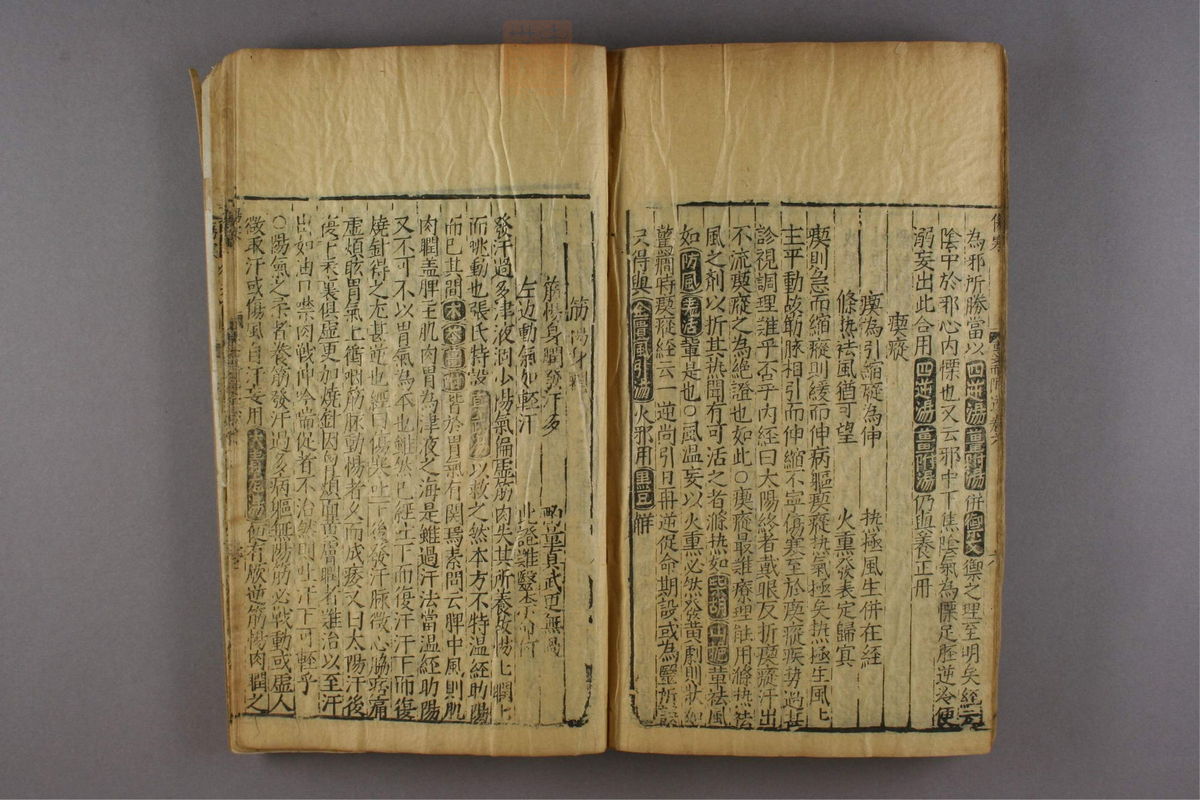 為邪所勝當以四逆湯薑附湯併禦之理至明矣經云
陰中於邪心內慄也又云邪中下焦陰氣為慄足脛逆冷便
溺妄出此合用四逆湯薑附湯仍與養正丹
瘈瘲
瘈為引縮瘲為伸 热極風生併在經
滌热祛風猶可望 火熏發表定歸冥
瘈則急而縮瘲則緩而伸病軀瘈瘲热氣極矣热極生風
主乎動故筋脉相引而伸縮不寧傷寒至於瘈瘲疾势過甚
診視調理難乎否乎內經曰太陽終者戴眼反折瘈瘲汗出
不流瘈瘲之為絕證也如此○瘈瘲最難療理能用滌热祛
風之劑以折其热間有可活之者滌热如柴胡山梔輩祛風
如防風羌活輩是也○風温妄以火熏必然發黃劇則狀如
驚癎時瘈瘲經云一逆尚引日再逆促命期設或為醫所誤
只得與風引湯火邪用黑豆解
筋惕身瞤
筋惕身瞤發汗多 真武更無過
左边動氣如輕汗 此證難醫
發汗過多津液洞少陽氣偏虛筋肉失其所養故惕惕瞤瞤
而跳動也張氏特設真武湯以救之然本方不特温經助陽
而已其間木苓薑附皆於胃氣有関焉素問云脾中風則肌
肉瞤盖脾主肌肉胃為津液之海是雖過汗法當温經助陽
又不可不以胃氣為本也雖然已經吐下而復汗汗下而復
燒針得之尤甚焉也經曰傷寒吐下後發汗脉微心脇疼痛
虛煩眩胃氣上衝咽筋脉動惕者久而成痿又曰太陽汗後
傷上表裏俱虛更加燒針因胷煩面黃膚瞤者難治以至汗
出如油口禁肉戰呻吟喘促者不治然則吐汗下可輕乎
○陽氣之下者養筋發汗過多病軀無陽筋必戰動或虛人
微取汗或傷風自汗妄用大青龍湯便有厥逆筋惕肉瞤之